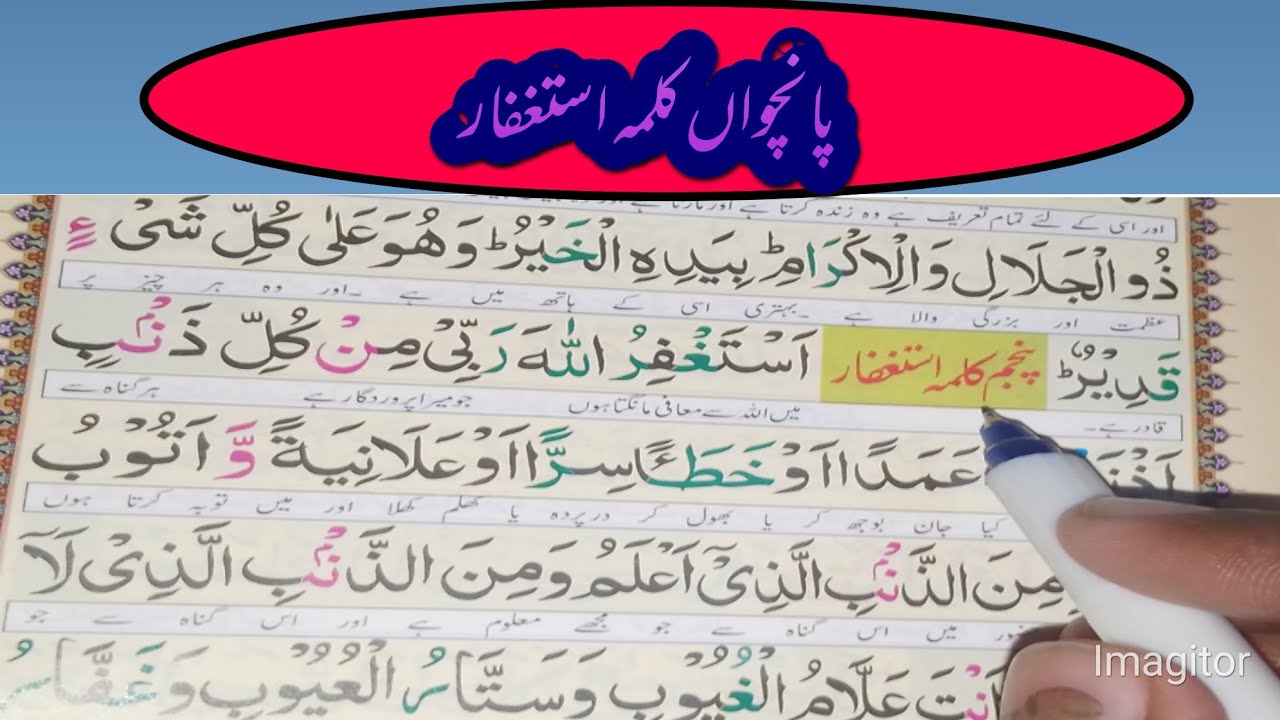 پانچواں کلمہ استغفار
اور اسی کے لئے تمام تعریف ہے وہ زندہ کرتا ہے اور مارتا ہے اور وہ
ذُو الْجَلَالِ وَالْاِكْرَامِ ؕ بِيَدِهِ الْخَيْرُ ؕ وَهُوَ عَلٰى كُلِّ شَىْءٍ
عظمت اور بزرگی والا ہے ۔بہتری اسی کے ہاتھ میں ہے ۔اور وہ ہر چیز پر
قَدِيْرٌ ؕ پنجم کلمہ استغفار اَسْتَغْفِرُ اللّٰهَ رَبِّىْ مِنْ كُلِّ ذَنْۢبٍ
قادر ہے۔ میں اللہ سے معافی مانگتا ہوں جو میرا پروردگار ہے ہر گناہ سے
عَمَدًا اَوْ خَطَأً سِرًّا اَوْ عَلَانِيَةً وَّ اَتُوْبُ
کیا جان بوجھ کر یا بھول کر در پردہ یا کھلم کھلا اور میں توبہ کرتا ہوں
مِنَ الذَّنْۢبِ الَّذِىْٓ اَعْلَمُ وَمِنَ الذَّنْۢبِ الَّذِىْ لَآ
میں اس گناہ سے جو مجھے معلوم ہے اور اس گناہ سے جو
اَنْتَ عَلَّامُ الْغُيُوْبِ وَسَتَّارُ الْعُيُوْبِ وَغَفَّارُ
Imagitor